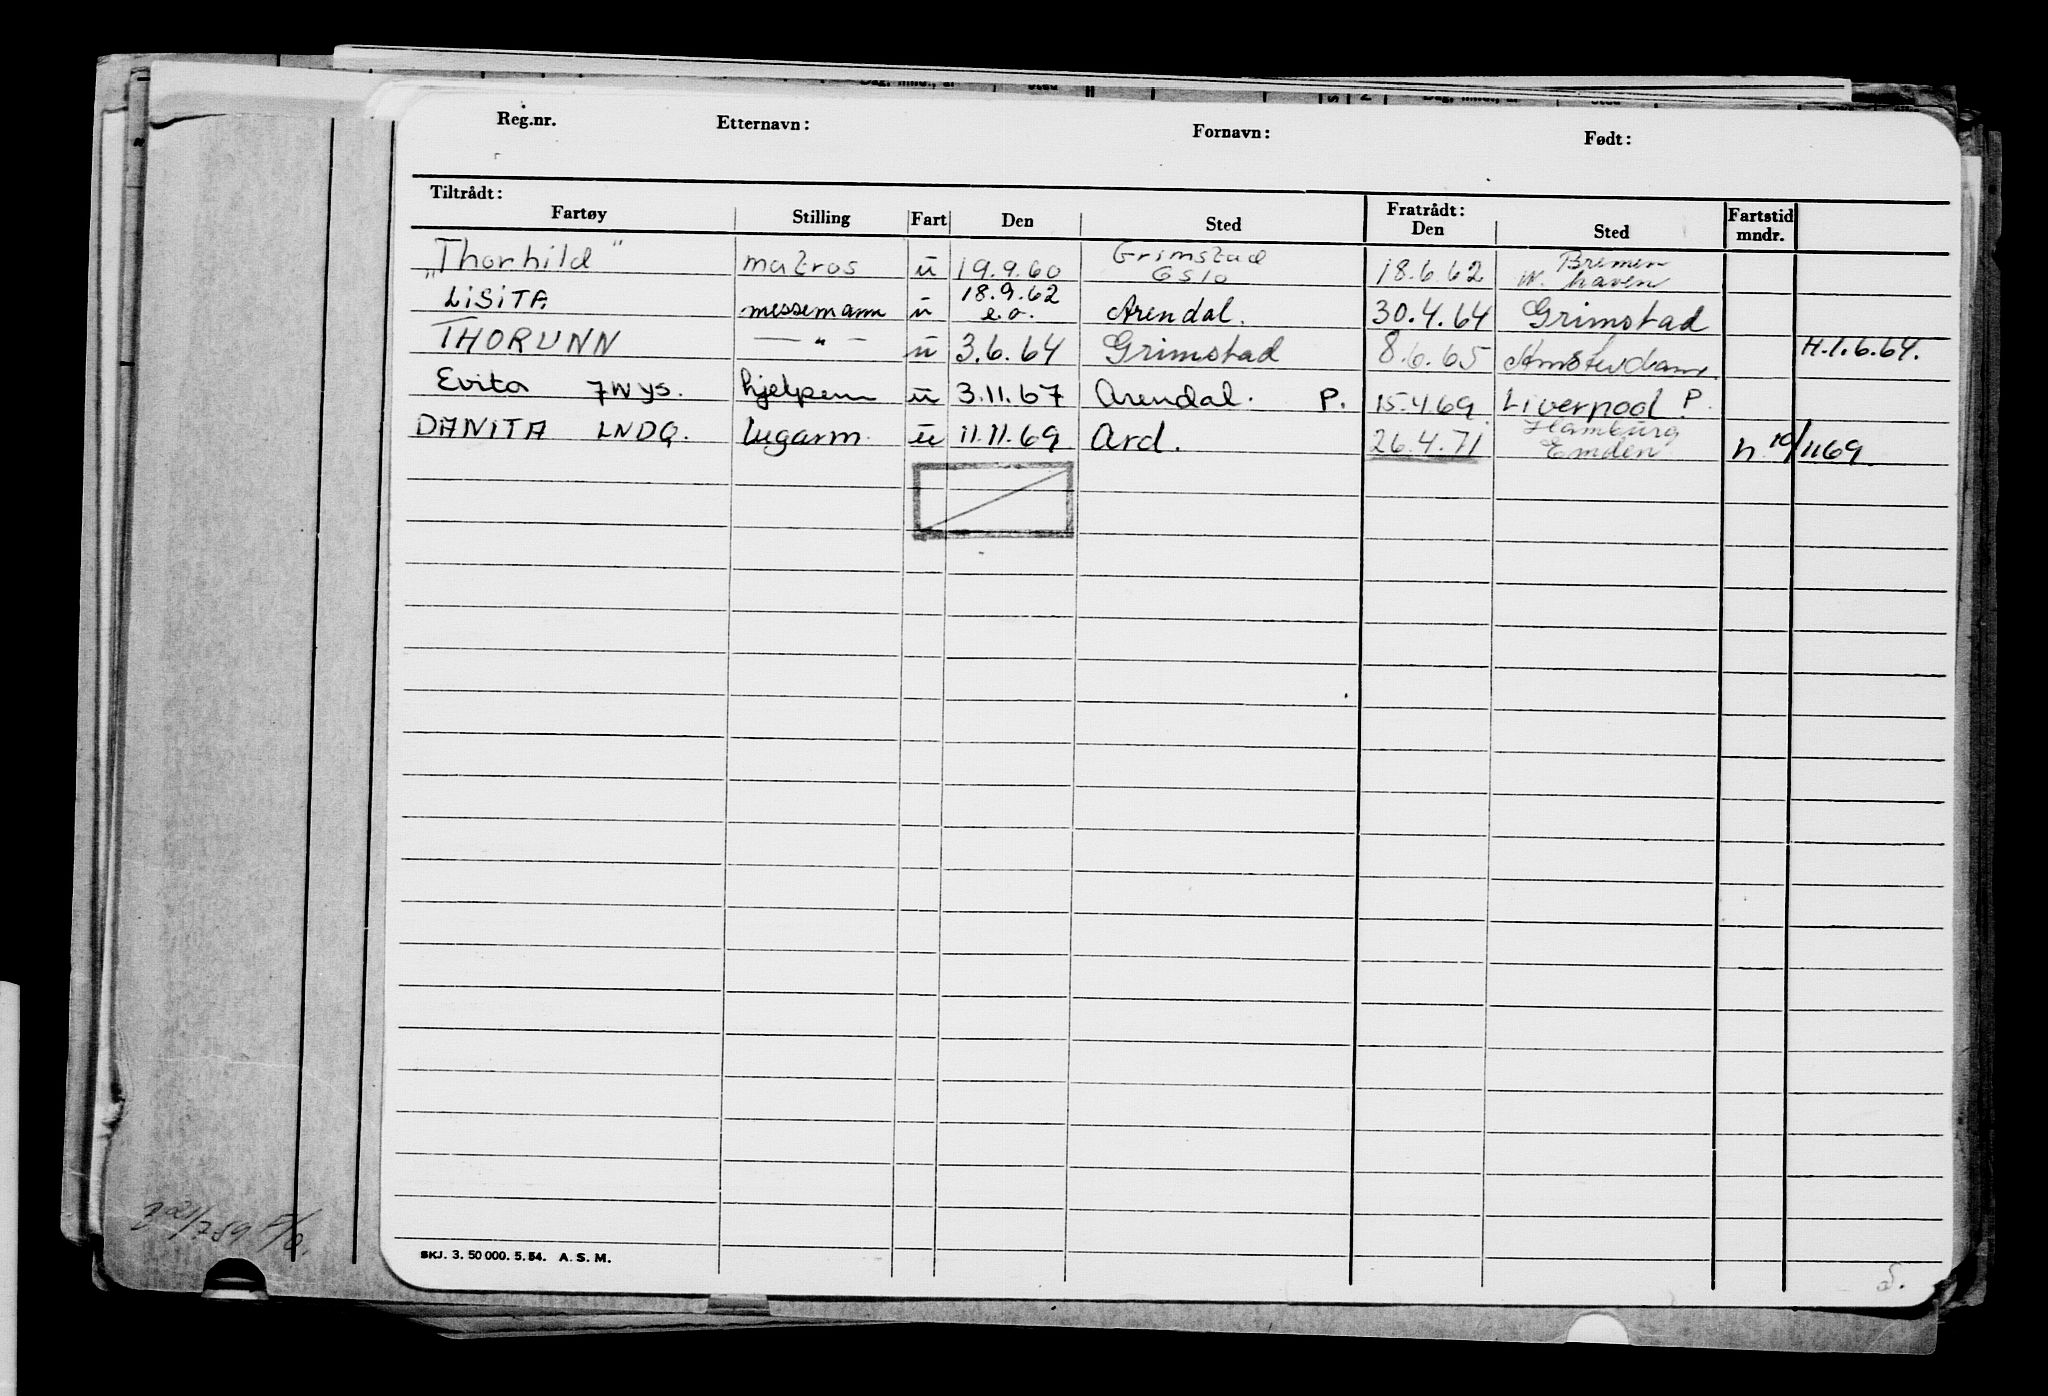 Reg.nr. Etternavn: Fornavn: Født:
Tiltrådt: Fratrådt:
Fartøy Stilling Fart Den Sted Den Sted Fartstid mndr.
"Thorhild" matros u 19.9.60 Grimstad Oslo 18.6.62 Bremen W. haven
LISITA messemann u 18.9.62 e.o. Arendal. 30.4.64 Grimstad
THORUNN — " — u 3.6.64 Grimstad 8.6.65 Amsterdam. H.1.6.64.
Evita JWYS. hjelpem u 3.11.67 Arendal. P. 15.4.69 Liverpool P.
DANITA LNDQ. Lugarm. u 11.11.69 Ard. 26.4.71 Hamburg Emden h 10/1169
SKJ. 3. 50 000. 5. 54. A. S. M.